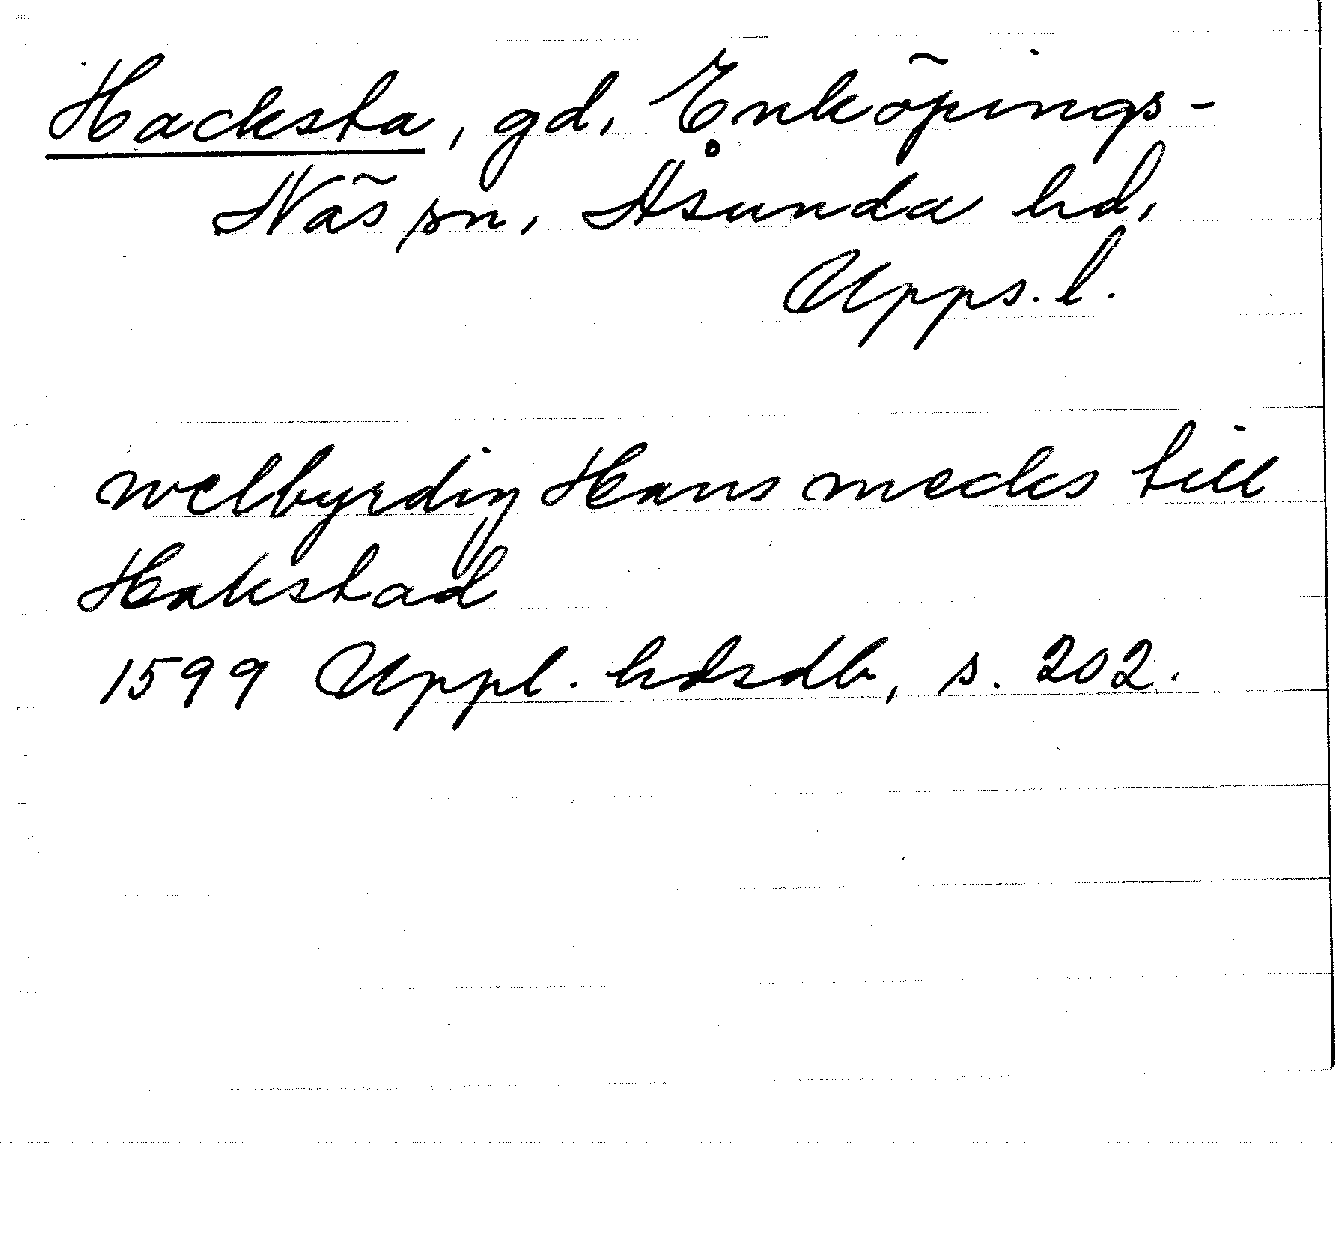 Hacksta, gd, Enköpings-
Näs sn, Åsunda hd,
Upps. l.
welbyrdig Hans mecks till
Hakstad
1599 Uppl. hdsdb, s. 202.